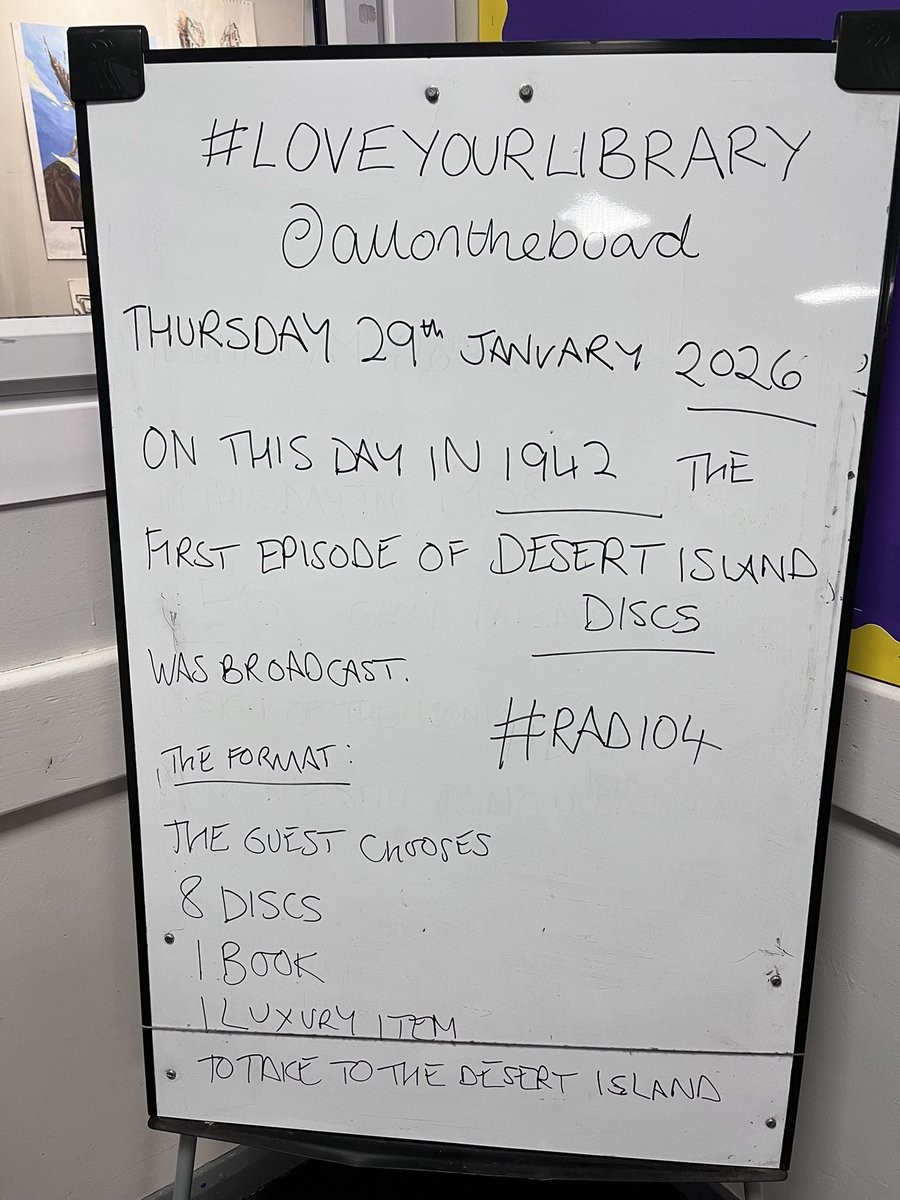 #LOVEYOURLIBRARY
@allontheboard
THURSDAY 29th JANUARY 2026
ON THIS DAY IN 1942 THE
FIRST EPISODE OF DESERT ISLAND
DISCS
WAS BROADCAST.
#RADIO4
THE FORMAT:
THE GUEST CHOOSES
8 DISCS
1 BOOK
1 LUXURY ITEM
TO TAKE TO THE DESERT ISLAND